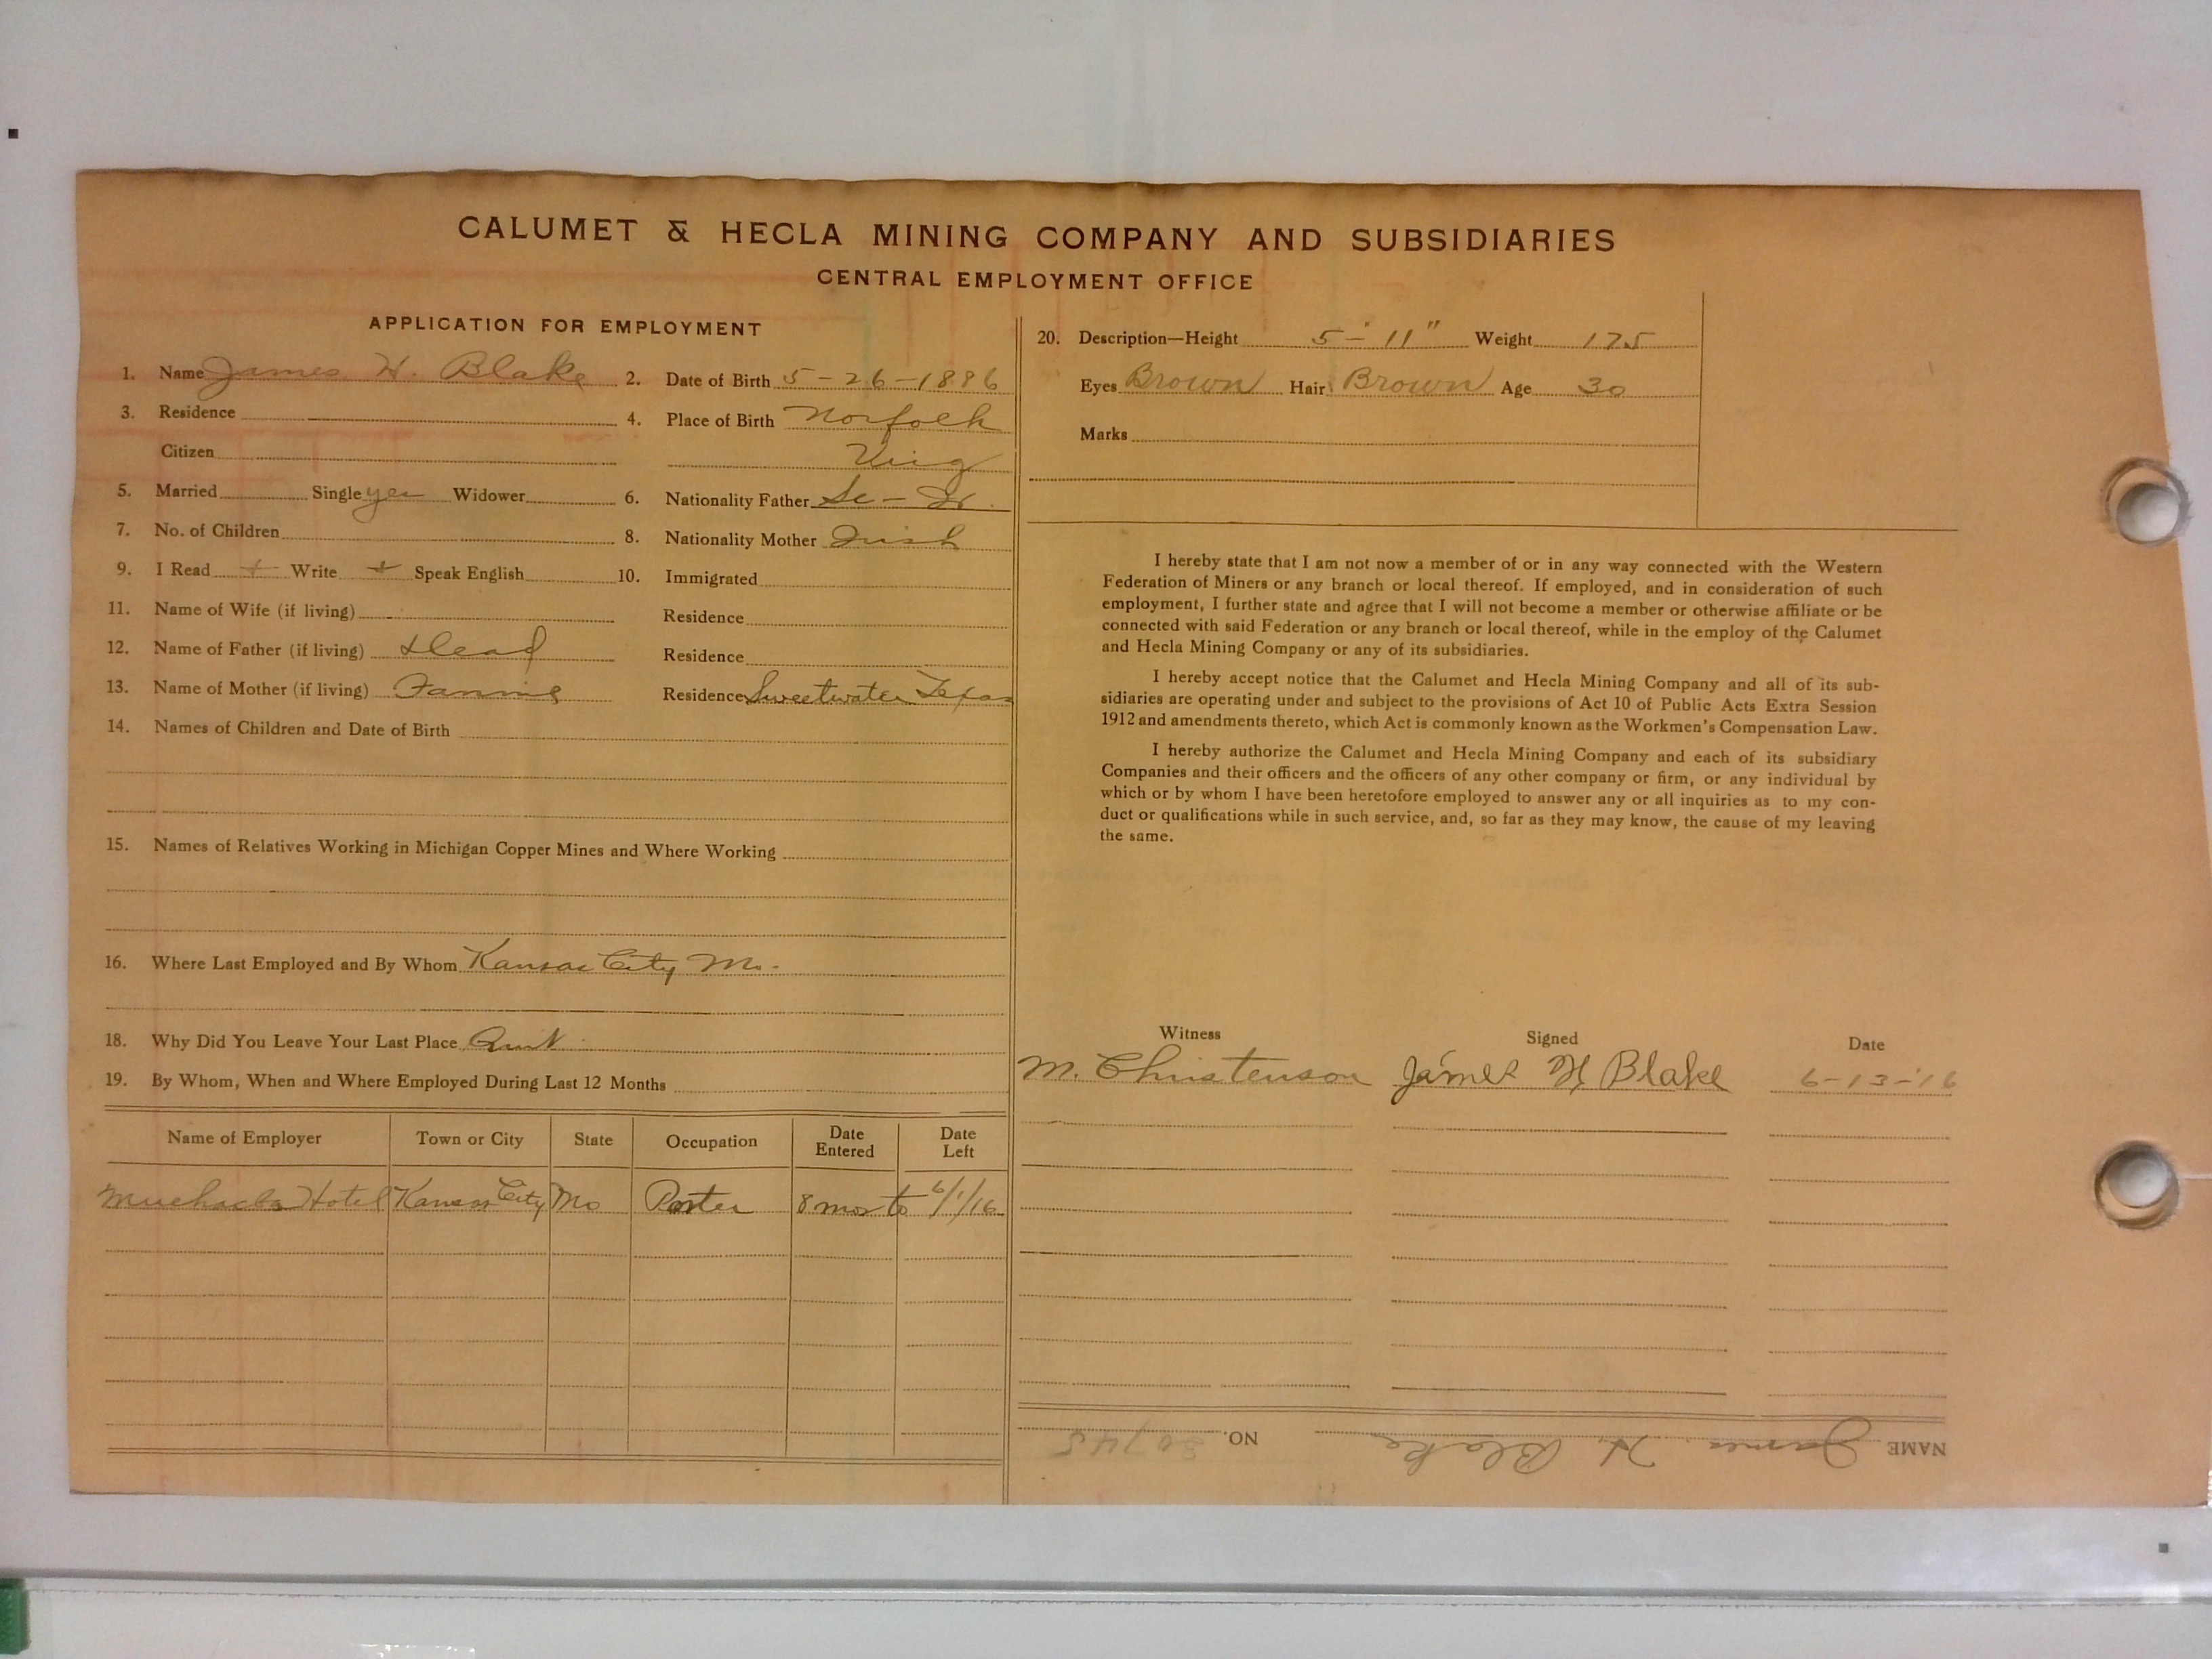 CALUMET & HECLA MINING COMPANY AND SUBSIDIARIES
CENTRAL EMPLOYMENT OFFICE
APPLICATION FOR EMPLOYMENT
1. Name James H. Blake 2. Date of Birth 5-26-1886
3. Residence 4. Place of Birth Norfolk
Citizen Virg
5. Married Single yes Widower 6. Nationality Father Sc-Ir.
7. No. of Children 8. Nationality Mother Irish
9. I Read + Write + Speak English 10. Immigrated
11. Name of Wife (if living) Residence
12. Name of Father (if living) Dead Residence
13. Name of Mother (if living) Fannie Residence Sweetwater Texas
14. Names of Children and Date of Birth
15. Names of Relatives Working in Michigan Copper Mines and Where Working
16. Where Last Employed and By Whom Kansas City Mo.
18. Why Did You Leave Your Last Place Quit
19. By Whom, When and Where Employed During Last 12 Months
Name of Employer Town or City State Occupation Date Entered Date Left
Hotel Kansas City Mo Porter 8 mos to 6/1/16
20. Description—Height 5-11" Weight 175
Eyes Brown Hair Brown Age 30
Marks
I hereby state that I am not now a member of or in any way connected with the Western
Federation of Miners or any branch or local thereof. If employed, and in consideration of such
employment, I further state and agree that I will not become a member or otherwise affiliate or be
connected with said Federation or any branch or local thereof, while in the employ of the Calumet
and Hecla Mining Company or any of its subsidiaries.
I hereby accept notice that the Calumet and Hecla Mining Company and all of its sub-
sidiaries are operating under and subject to the provisions of Act 10 of Public Acts Extra Session
1912 and amendments thereto, which Act is commonly known as the Workmen's Compensation Law.
I hereby authorize the Calumet and Hecla Mining Company and each of its subsidiary
Companies and their officers and the officers of any other company or firm, or any individual by
which or by whom I have been heretofore employed to answer any or all inquiries as to my con-
duct or qualifications while in such service, and, so far as they may know, the cause of my leaving
the same.
Witness Signed Date
M. Christenson James H Blake 6-13-'16
NAME James H. Blake NO. 30745